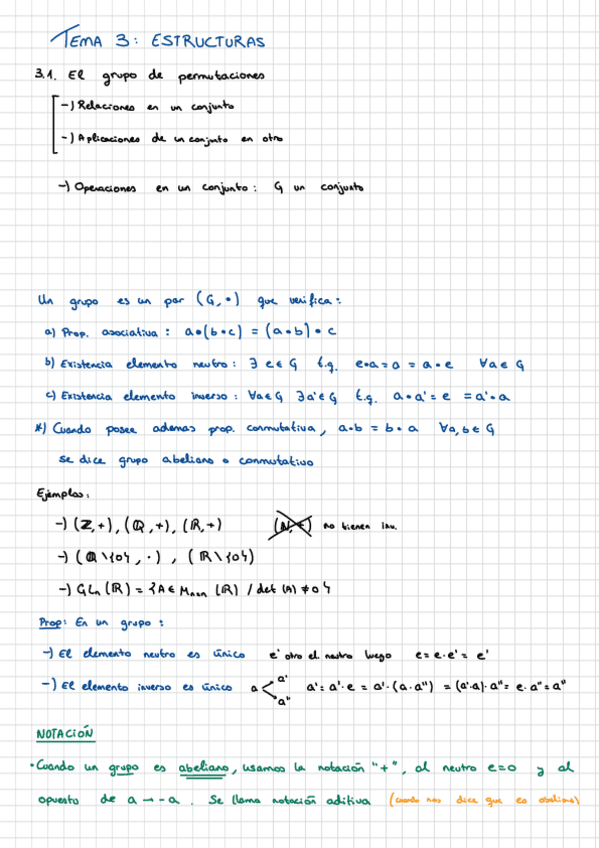 TEMA 3: ESTRUCTURAS
3.1. El grupo de permutaciones
-) Relaciones en un conjunto
-) Aplicaciones de un conjunto en otro
-) Operaciones en un conjunto: G un conjunto
Un grupo es un par (G, •) que verifica:
a) Prop. asociativa: a•(b•c) = (a•b)•c
b) Existencia elemento neutro: ∃ e∈G t.q. e•a=a=a•e ∀a∈G
c) Existencia elemento inverso: ∀a∈G ∃a'∈G t.q. a•a'=e =a'•a
*) Cuando posee ademas prop. conmutativa, a•b = b•a ∀a,b∈G
se dice grupo abeliano o conmutativo
Ejemplos:
-) (ℤ,+), (ℚ,+), (ℝ,+) (ℕ,+) no tienen inv.
-) (ℚ\{0}, ·) , (ℝ\{0})
-) GLn(ℝ) = {A∈Mnxn (ℝ) / det (A) ≠0}
Prop: En un grupo:
-) El elemento neutro es único e' otro el. neutro luego e=e·e'=e'
-) El elemento inverso es único a < a' a'' a'=a'·e = a'·(a·a'') = (a'·a)·a''= e·a''=a''
NOTACIÓN
• Cuando un grupo es abeliano, usamos la notación "+", al neutro e=0 y al
opuesto de a → -a. Se llama notación aditiva (cuando nos dice que es abeliano)